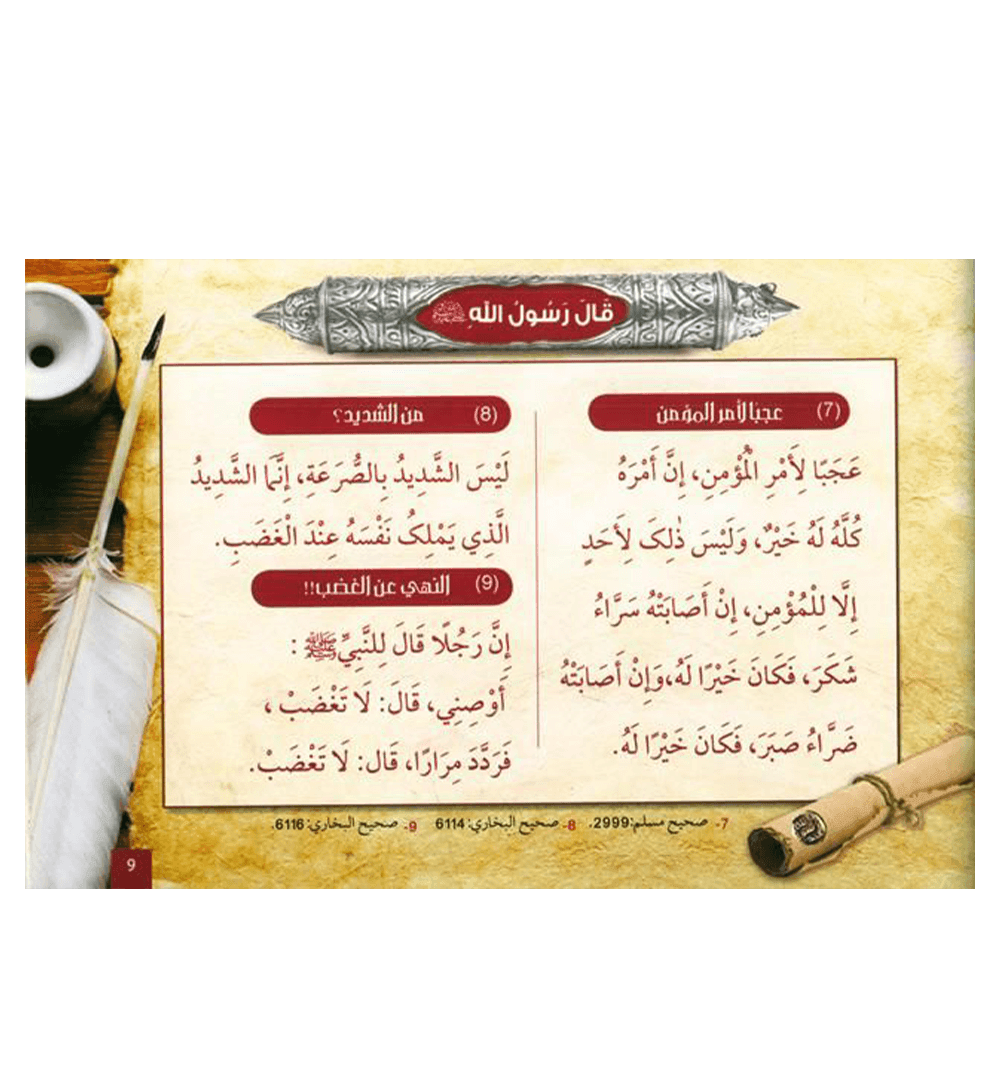 قَالَ رَسُولُ اللهِ ﷺ
(7) عجبًا لأمر المؤمن
عَجَبًا لِأَمْرِ الْمُؤْمِنِ، إِنَّ أَمْرَهُ
كُلَّهُ لَهُ خَيْرٌ، وَلَيْسَ ذٰلِکَ لِأَحَدٍ
إِلَّا لِلْمُؤْمِنِ، إِنْ أَصَابَتْهُ سَرَّاءُ
شَكَرَ، فَكَانَ خَيْرًا لَهُ،وَإِنْ أَصَابَتْهُ
ضَرَّاءُ صَبَرَ، فَكَانَ خَيْرًا لَهُ.
(8) من الشديد؟
لَيْسَ الشَّدِيدُ بِالصُّرَعَةِ، إِنَّمَا الشَّدِيدُ
الَّذِي يَمْلِکُ نَفْسَهُ عِنْدَ الْغَضَبِ.
(9) النهي عن الغضب!!
إِنَّ رَجُلًا قَالَ لِلنَّبِيِّ ﷺ :
أَوْصِنِي، قَالَ: لَا تَغْضَبْ ،
فَرَدَّدَ مِرَارًا، قَال: لَا تَغْضَبْ.
7- صحيح مسلم:2999. 8- صحيح البخاري: 6114 9- صحيح البخاري: 6116.
9